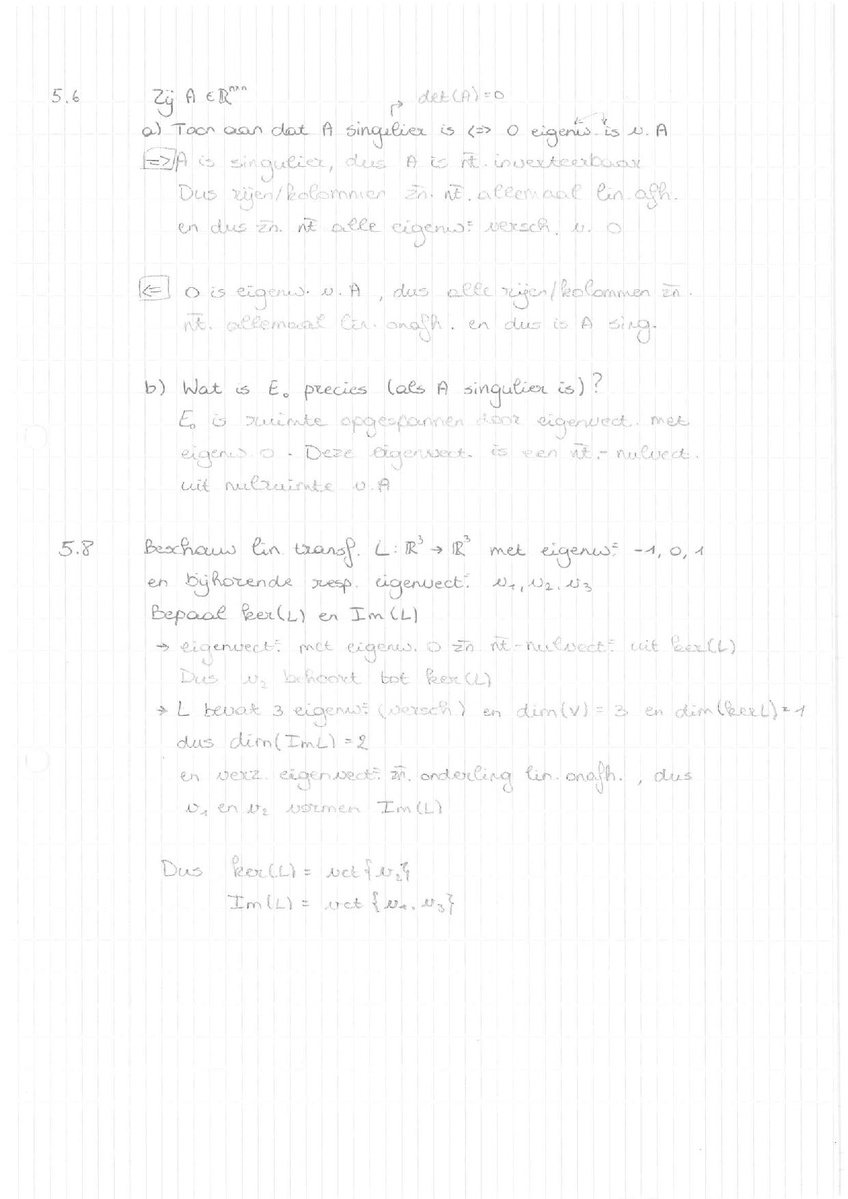 5.6 Zij A ∈ ℝⁿˣⁿ → det(A)=0
a) Toon aan dat A singulier is <=> 0 eigenw. is v. A
=> A is singulier, dus A is n̅t̅. inverteerbaar
Dus rijen/kolommen z̅n̅. n̅t̅. allemaal lin. afh.
en dus z̅n̅. n̅t̅ alle eigenw= versch. v. 0
<= 0 is eigenw. v. A , dus alle rijen/kolommen z̅n̅.
n̅t̅. allemaal lin. onafh. en dus is A sing.
b) Wat is E₀ precies (als A singulier is)?
E₀ is ruimte opgespannen door eigenvect. met
eigenw 0. Deze eigenvect. is een n̅t̅.-nulvect.
uit nulruimte v. A
5.8 Beschouw lin transf. L: ℝ³ → ℝ³ met eigenw= -1, 0, 1
en bijhorende resp. eigenvect= v₁, v₂, v₃
Bepaal ker(L) en Im(L)
→ eigenvect= met eigenw. 0 z̅n̅ n̅t̅-nulvect= uit ker(L)
Dus v₂ behoort tot ker(L)
→ L bevat 3 eigenw= (versch) en dim(V) = 3 en dim(kerL) = 1
dus dim(ImL) = 2
en verz. eigenvect= z̅n̅. onderling lin. onafh. , dus
v₁ en v₂ vormen Im(L)
Dus ker(L) = vct {v₂}
Im(L) = vct {v₁, v₃}